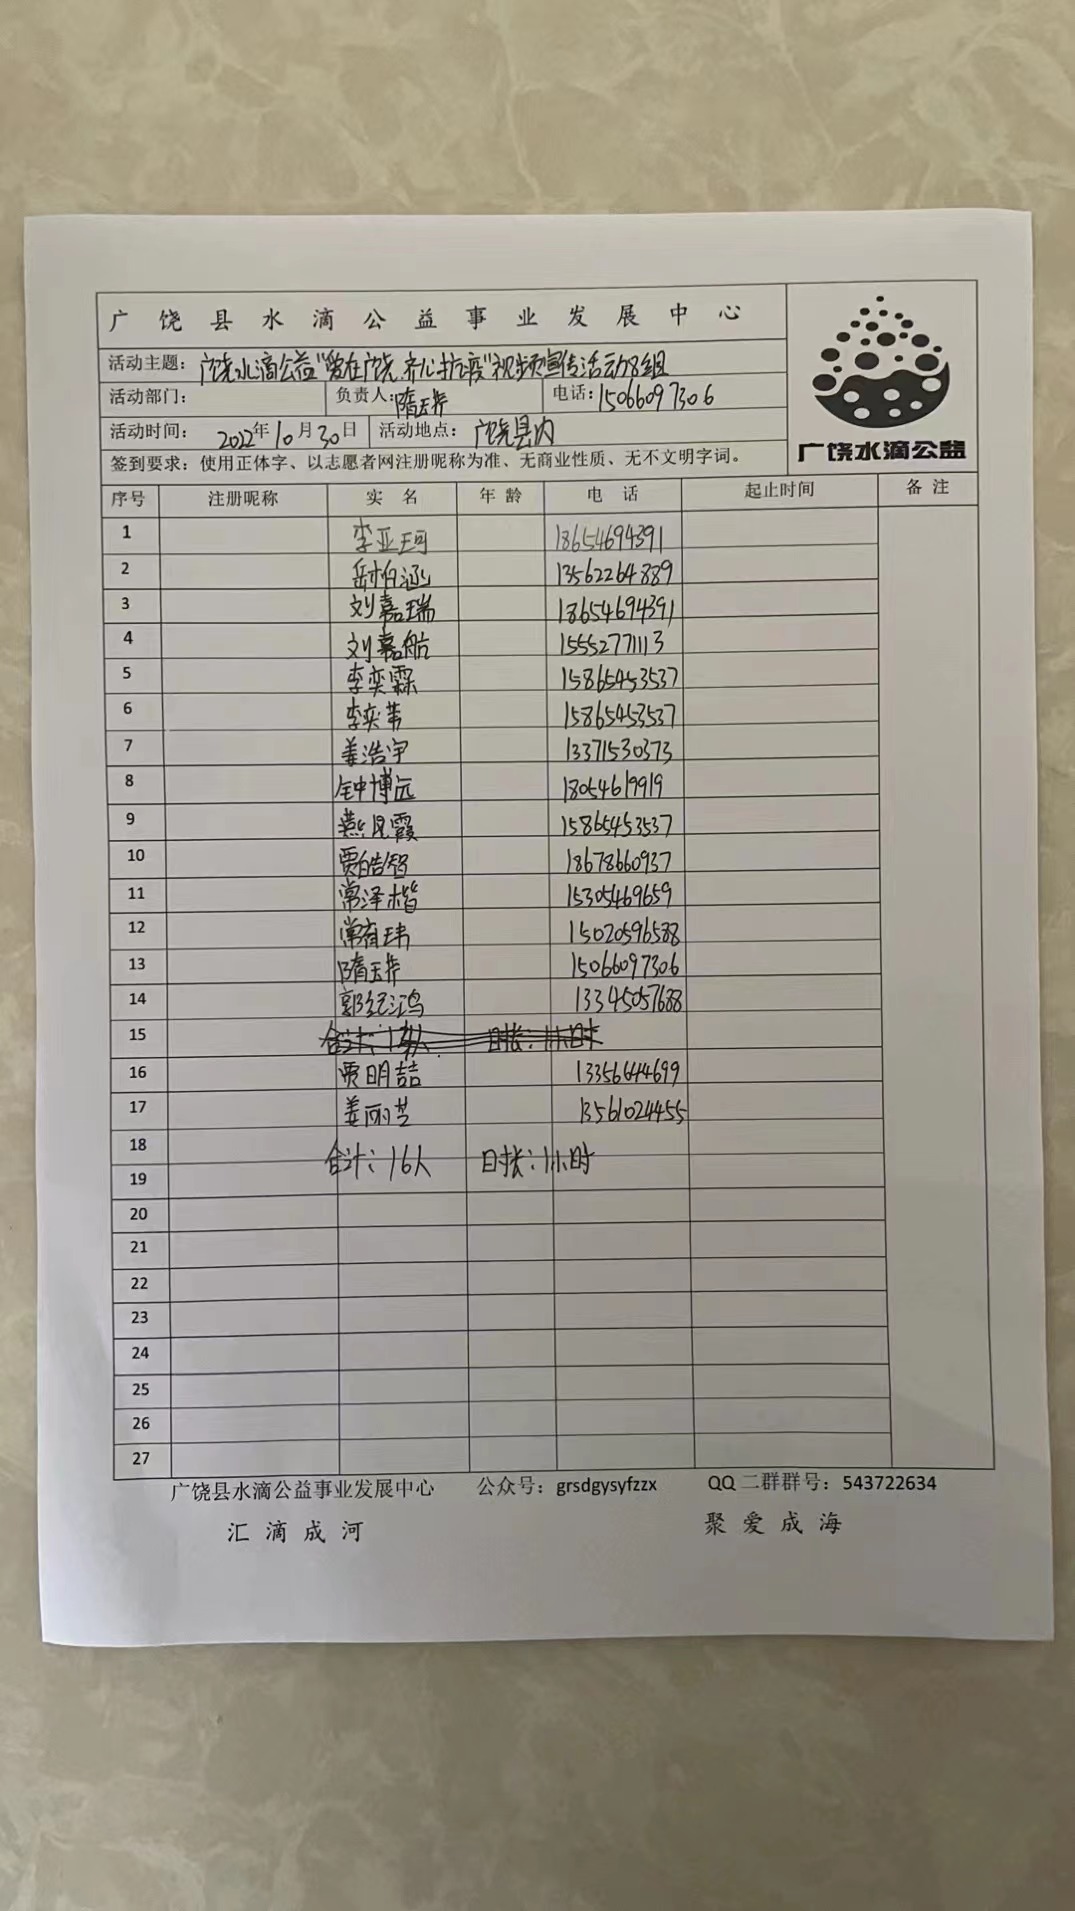 广饶县水滴公益事业发展中心
活动主题：广饶水滴公益"爱在广饶.齐心抗疫"视频宣传活动8组
活动部门： 负责人：隋玉 电话：15066097306
活动时间： 2022年10月30日 活动地点：广饶县内
签到要求：使用正体字、以志愿者网注册昵称为准、无商业性质、无不文明字词。
广饶水滴公益
序号 注册昵称 实名 年龄 电话 起止时间 备注
1 李亚珂 18654694391
2 岳柏涵 13562264889
3 刘嘉瑞 18654694391
4 刘嘉航 15552771113
5 李奕霖 15865453537
6 李奕苇 15865453537
7 姜浩宇 13371530373
8 钟博远 18054619919
9 燕凤霞 15865453537
10 贾皓智 18678660937
11 常泽楷 15305469659
12 常有玮 15020596588
13 隋玉 15066097306
14 郭纪鸿 13345057688
15 合计：人 时长：1小时
16 贾明喆 13356644699
17 姜丽芝 13561024455
18
合计：16人 时长：1小时
19
20
21
22
23
24
25
26
27
广饶县水滴公益事业发展中心 公众号：grsdgysyfzzx QQ二群群号：543722634
汇滴成河 聚爱成海